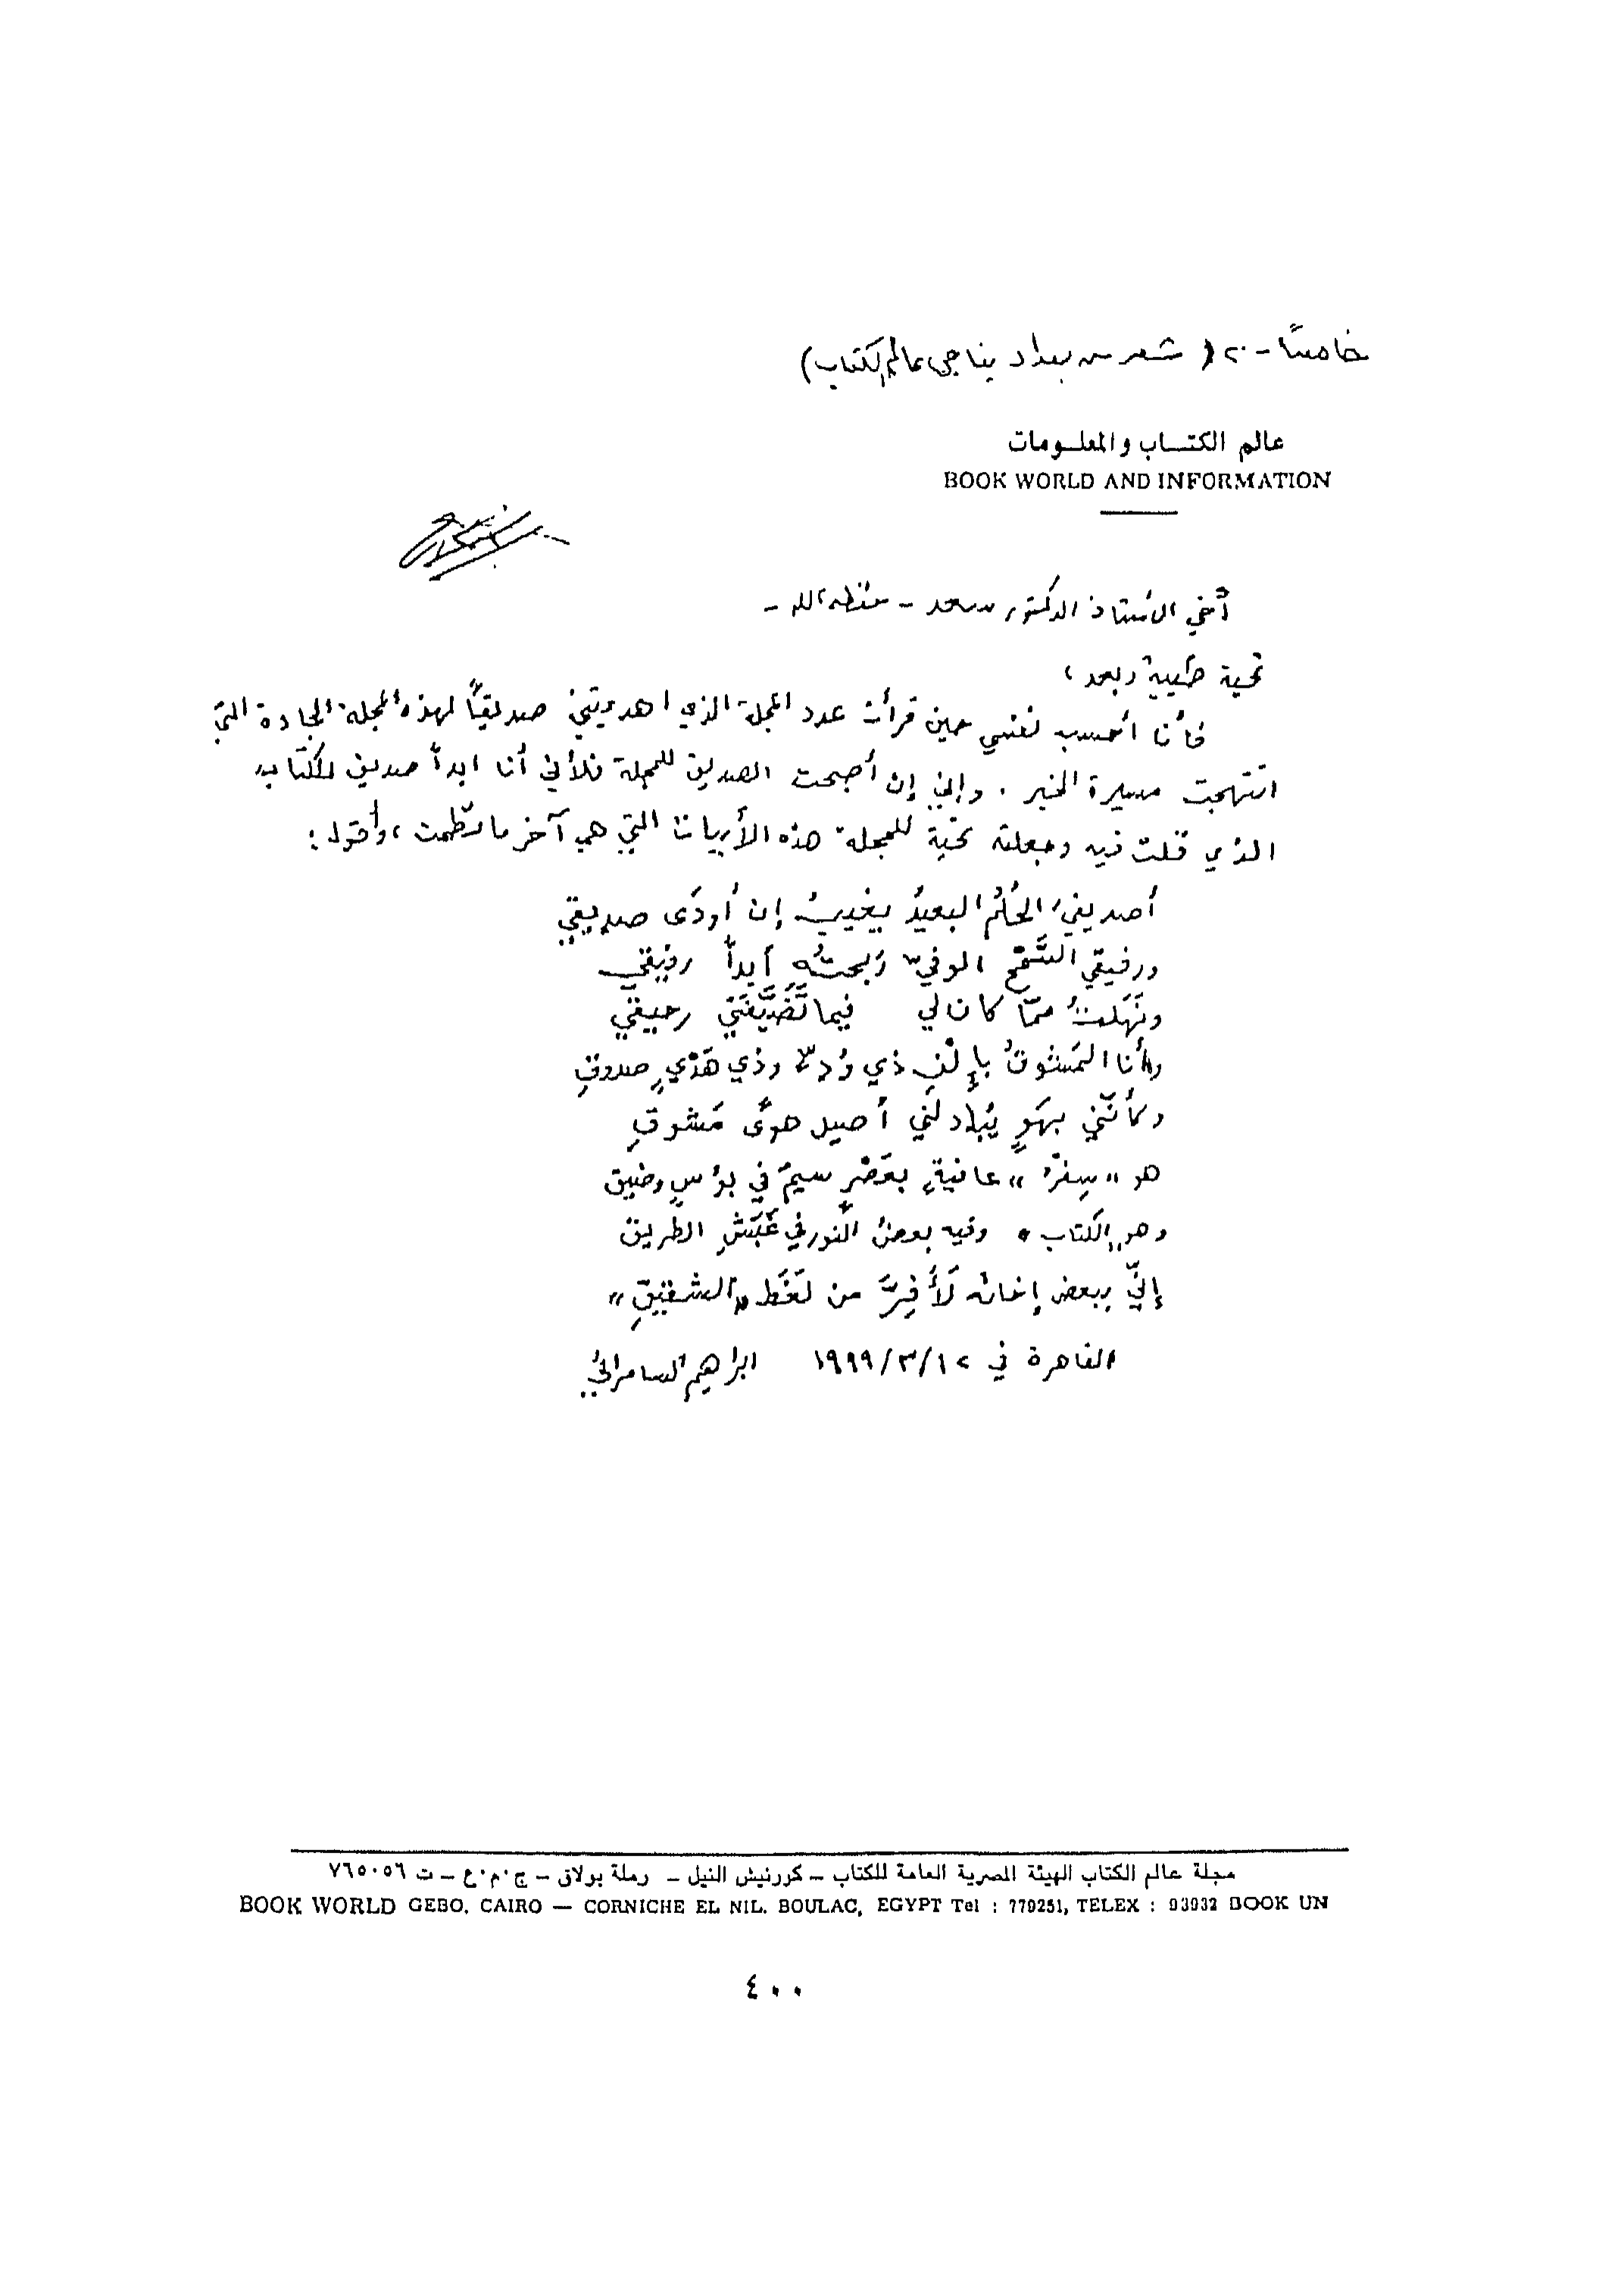 خامسًا - ٢٠ ( شعر من بغداد يناجى عالم الكتاب)
عالم الكتــاب والمعلـومات
BOOK WORLD AND INFORMATION
أخي الأستاذ الدكتور سعد - حفظه الله -
تحية طيبة وبعد ،
فأنا أحسب نفسي حين قرأت عدد المجلة الذي اهديتني صديقًا لهذه المجلة الجادة التي
انتهجت مسيرة الخير . وإني إن أصبحت الصديق للمجلة فلأني أنا ابدأ صديق للكتاب
الذي قلت فيه وجعلته تحية للمجلة هذه الأبيات التي هي آخر ما نظمت ، وأقول :
أصديقيَ الحُلُمُ البعيدُ يغيبُ إن أودَى صديقي
ورفيقي السَّمْحَ الوفيّ رَبحتُه أبداً رفيقي
ونَهَلتُ ممّا كان لي فيما تَضَيَّفَني رحيقي
وأنا المَشوقُ بإلْفِ ذي وُدٍّ وذي هَدْيٍ صدوقِ
وكأنّني بهَوٍ يُبادلني أصيل هوىً مَشوقِ
هو « سِفرُ » عافيةٍ بعَصْرٍ سيمَ في بؤسٍ وضيق
وهو "الكتاب" وفيه بعضُ النور في غَبَشِ الطريق
إنّي ببعض إخائه لَأَفِرُّ من لَغَط «الشقيقِ»
القاهرة في ١٢/٣/١٩٩٩ ابراهيم السامرائي
مجلة عالم الكتاب الهيئة المصرية العامة للكتاب – كورنيش النيل – رملة بولاق – ج٠م٠ع – ت ٧٦٥٠٥٦
BOOK WORLD GEBO, CAIRO — CORNICHE EL NIL. BOULAC, EGYPT Tel : 779251, TELEX : 93932 BOOK UN
٤٠٠